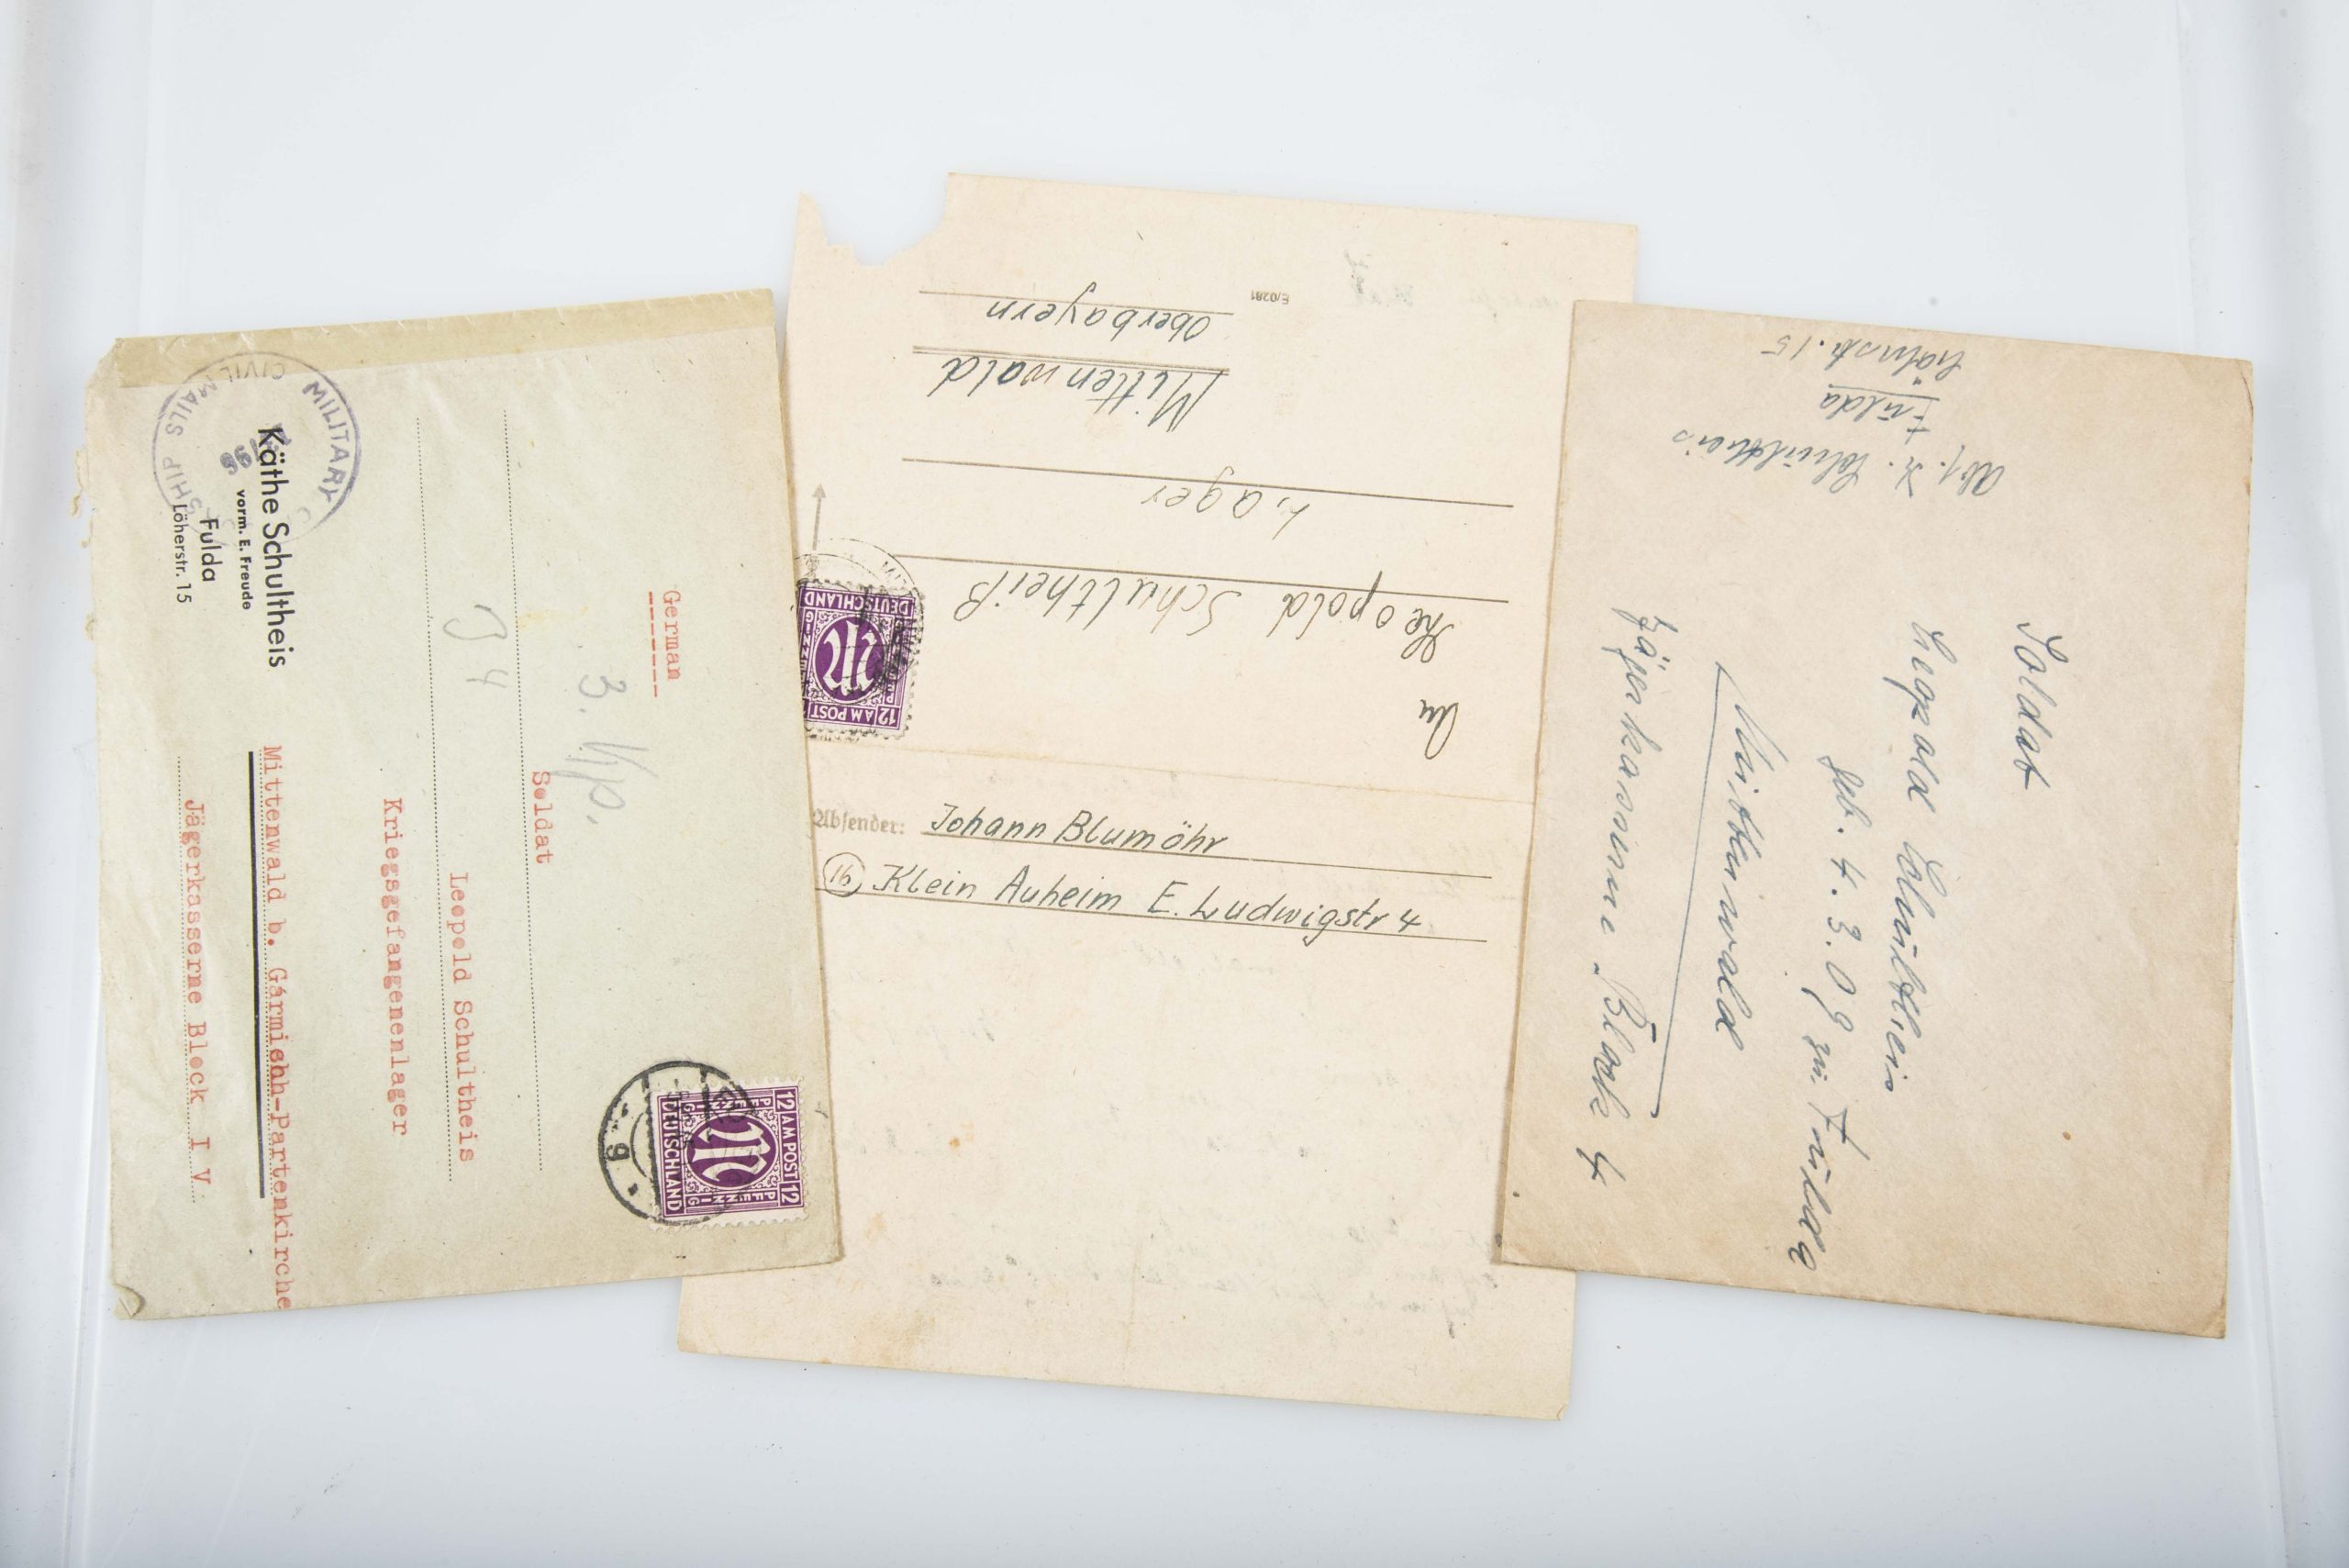 MILITARY
CIVIL MAILS
Käthe Schultheis
vorm. E. Freude
Fulda
Löherstr. 15
German
3. Kp.
J 4
Soldat
Leopold Schultheis
Kriegsgefangenenlager
Mittenwald b. Garmisch-Partenkirche
Jägerkasserne Block I V.
12 AM POST 12
PFENNIG
PFENNIG
M
DEUTSCHLAND
9
An
Theopold Schultheiß
Lager
Mittenwald
Oberbayern
E/0281
12 AM POST
PFENNIG
M
DEUTSCHLAND
Absender: Johann Blumöhr
16 Klein Auheim E. Ludwigstr 4
Soldat
Leopold Schultheis
geb. 4. 3. 09 zu Fulda
Mittenwald
Jägerkasserne Block 4
Abs. K. Schultheis
Fulda
Löherstr. 15